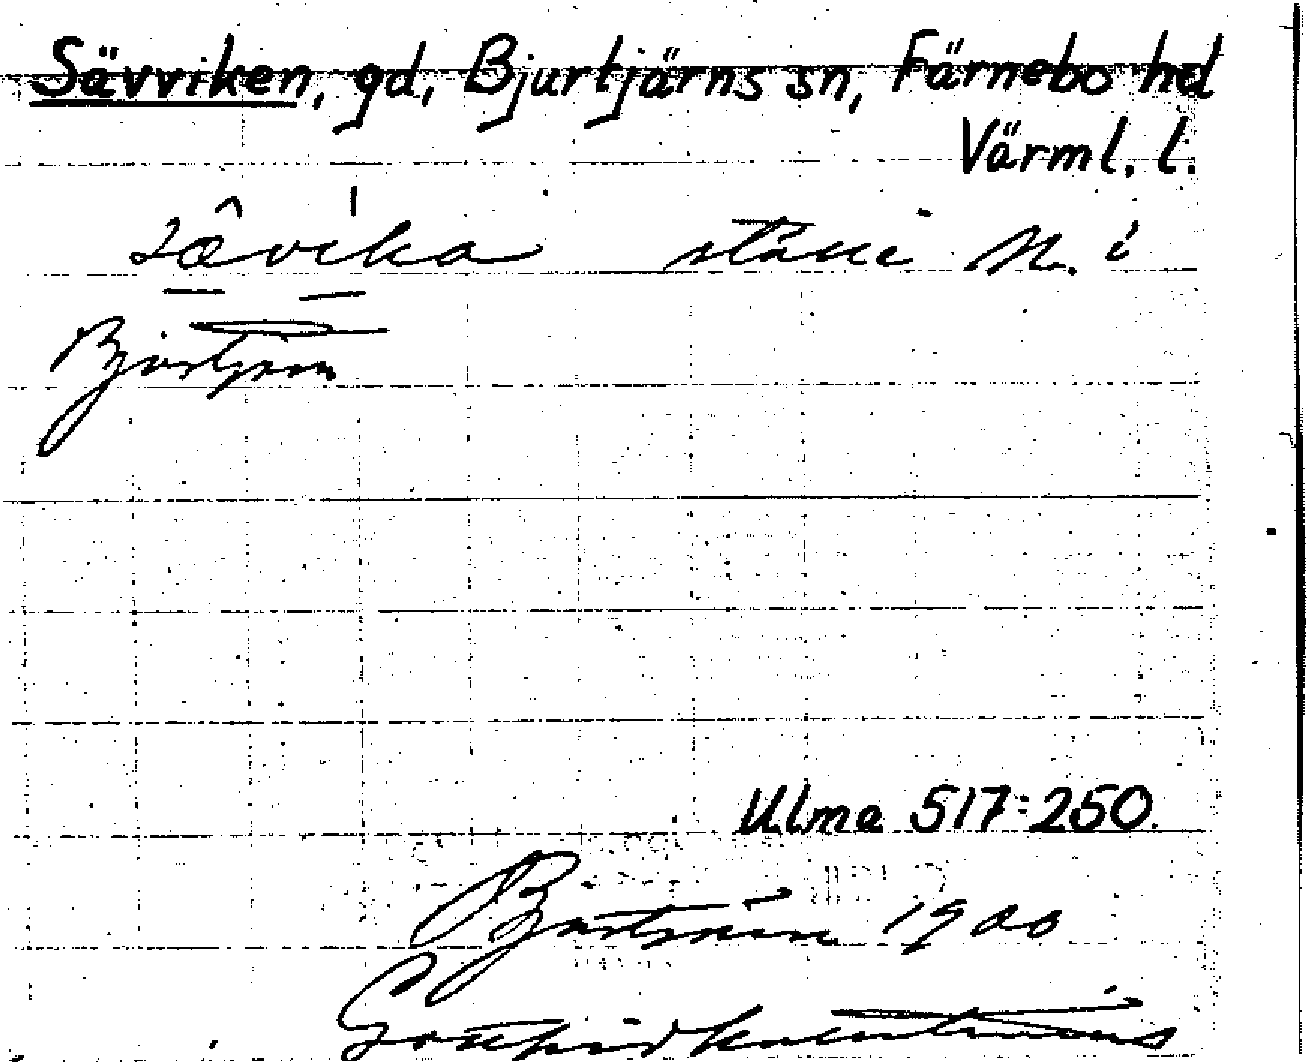 Sävviken, gd, Bjurtjärns sn, Färnebo hd
Värml. l.
sævika ställe N. i
Bjurtjärn
Ulma 517:250.
Bjurtjärn 1900
Gottfrid Kallstenius